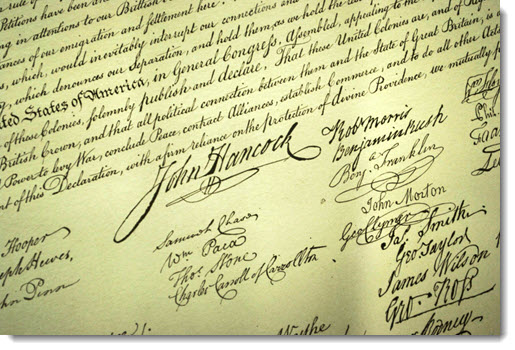 Petitions have been
ing in attentions to our Brittish
ances of our emigration and settlement here.
s, which, would inevitably interrupt our connections and
which denounces our Separation, and hold them, as we hold the
ted States of America, in General Congress, Assembled, appealing to the
of these Colonies, solemnly publish and declare, That these United Colonies are, and of
British Crown, and that all political connection between them and the State of Great Britain, is
Power to levy War, conclude Peace, contract Alliances, establish Commerce, and to do all other Acts
of this Declaration, with a firm reliance on the protection of divine Providence, we mutually
John Hancock
Robt Morris
Benjamin Rush
Benj. Franklin
John Morton
Geo Clymer
Jas. Smith
Geo. Taylor
James Wilson
Geo. Ross
Hooper
seph Hewes,
hn Penn
Samuel Chase
Wm Paca
Thos. Stone
Charles Carroll of Carrollton
Wythe
Rodney